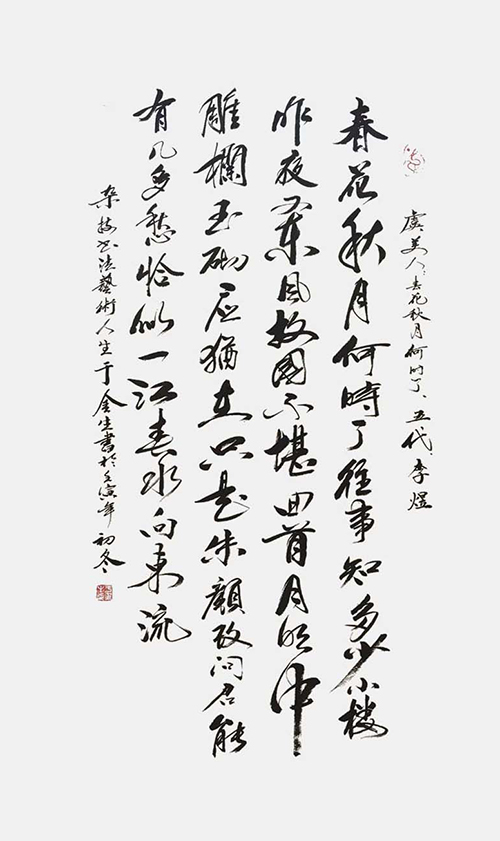 虞美人：春花秋月何时了、五代、李煜
春花秋月何時了往事知多少小樓
昨夜又東风故國不堪回首月明中
雕欄玉砌应猶在只是朱顏改问君能
有几多愁恰似一江春水向東流
杂技书法藝術人生于金生書於壬寅年初冬